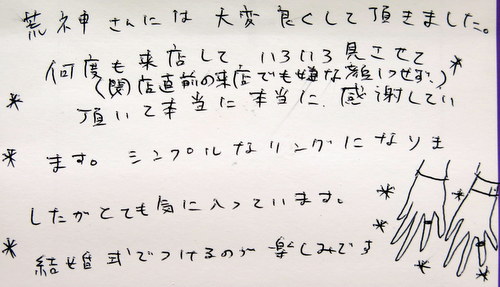 荒神さんには 大変良くして頂きました。
何度も来店して いろいろ見させて
(閉店直前の来店でも嫌な顔いつせず。)
頂いて本当に本当に、感謝してい
ます。シンプルなリングになりま
したがとても気に入っています。
結婚式でつけるのが楽しみです